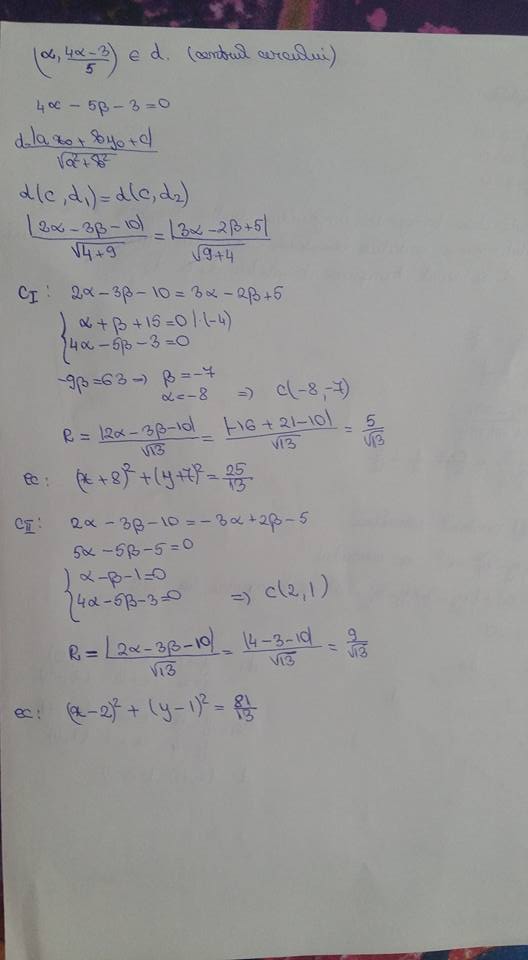 (α, 4α-3/5) ∈ d. (centrul cercului)
4α - 5β - 3 = 0
d = |ax₀ + by₀ + c| / √a²+b²
d(C, d₁) = d(C, d₂)
|2α - 3β - 10| / √4+9 = |3α - 2β + 5| / √9+4
C_I: 2α - 3β - 10 = 3α - 2β + 5
{ α + β + 15 = 0 | ·(-4)
4α - 5β - 3 = 0
-9β = 63 ⇒ β = -7
α = -8 ⇒ C(-8, -7)
R = |2α - 3β - 10| / √13 = |-16 + 21 - 10| / √13 = 5/√13
ec: (x + 8)² + (y + 7)² = 25/13
C_II: 2α - 3β - 10 = -3α + 2β - 5
5α - 5β - 5 = 0
{ α - β - 1 = 0
4α - 5β - 3 = 0 ⇒ C(2, 1)
R = |2α - 3β - 10| / √13 = |4 - 3 - 10| / √13 = 9/√13
ec: (x - 2)² + (y - 1)² = 81/13